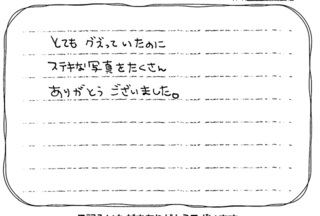 とても グズっていたのに
ステキな写真をたくさん
ありがとう ございました。